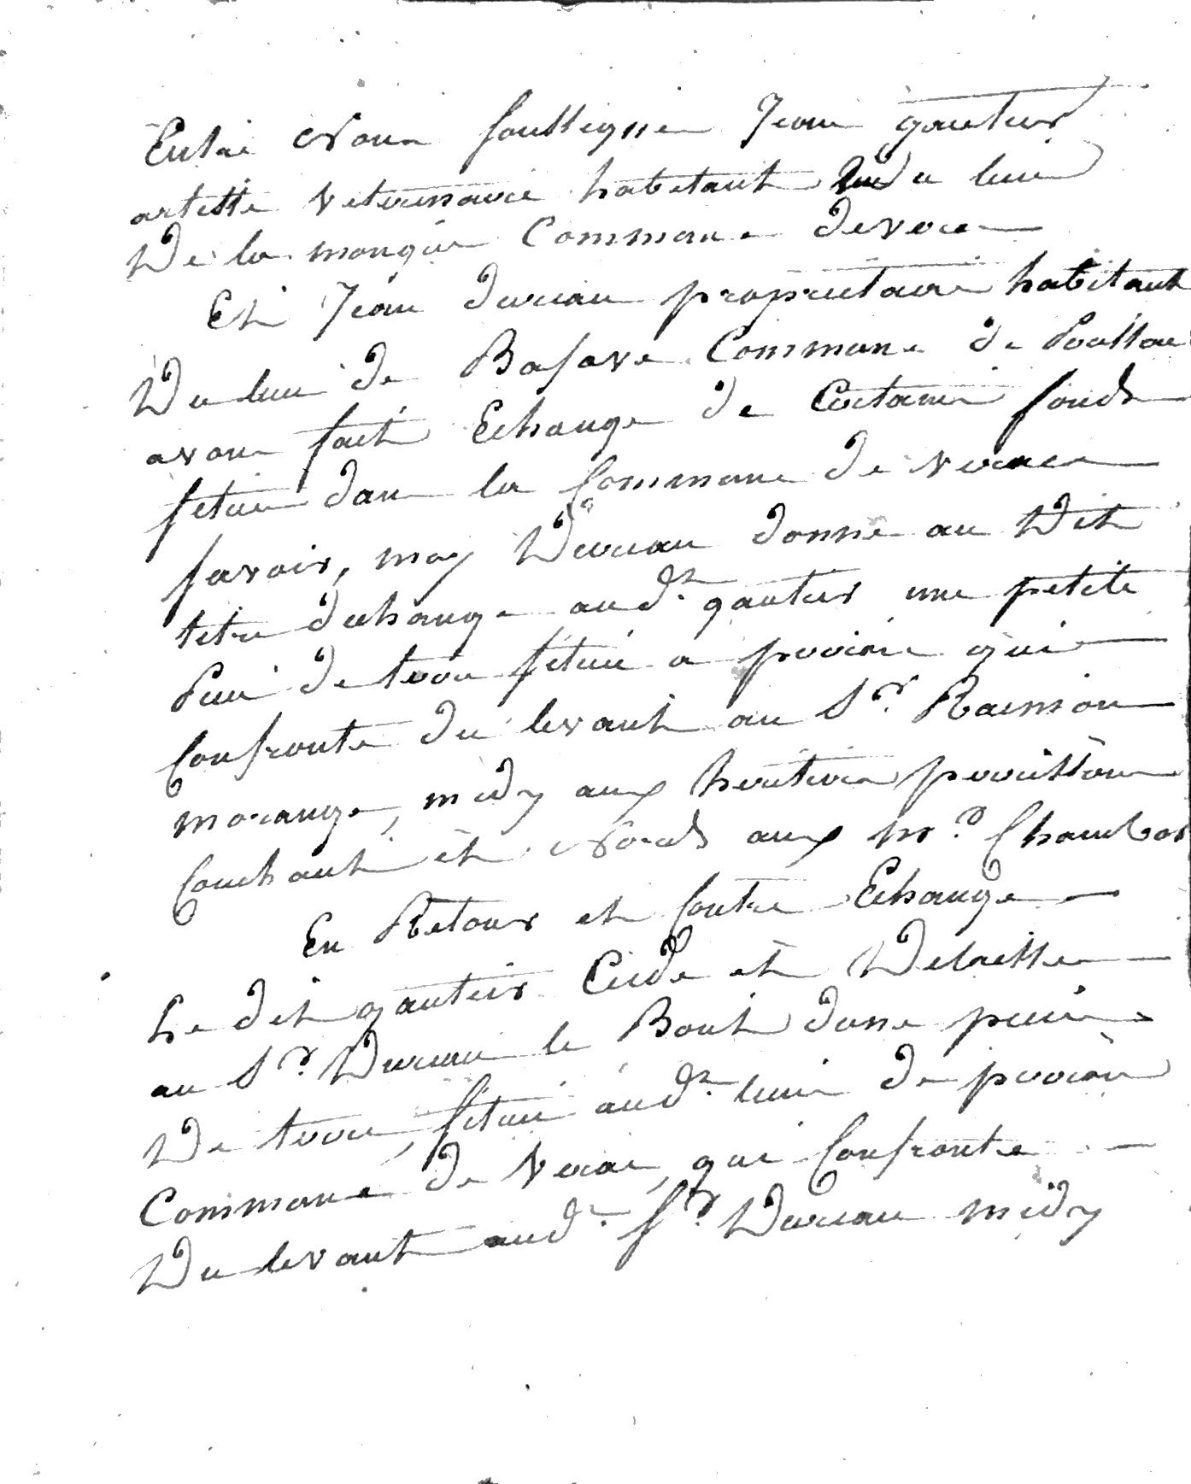 Entre Nous soussigne Jean gautier
artiste veterinaire habitant du lieu
De la Commune de verac
Et Jean Dureau proprietaire habitant
Du lieu de Commune de
avons fait Echange de Certains fonds
situés dans la Commune de verac
savoir, moy Dureau donne au Dit
titre d'echange aud.t gautier une petite
Piece de terre située a qui
Confronte du levant au S.r Raimon
morange, midy aux heritiers
Couchant et Nord aux m.r
En Retour et Contre Echange
Le dit gautier Cede et Delaisse
au S.r Dureau le Bout dune piece
De terre, situé aud.t lieu de
Commune de Verac, qui Confronte
Du levant aud.t S.r Dureau midy